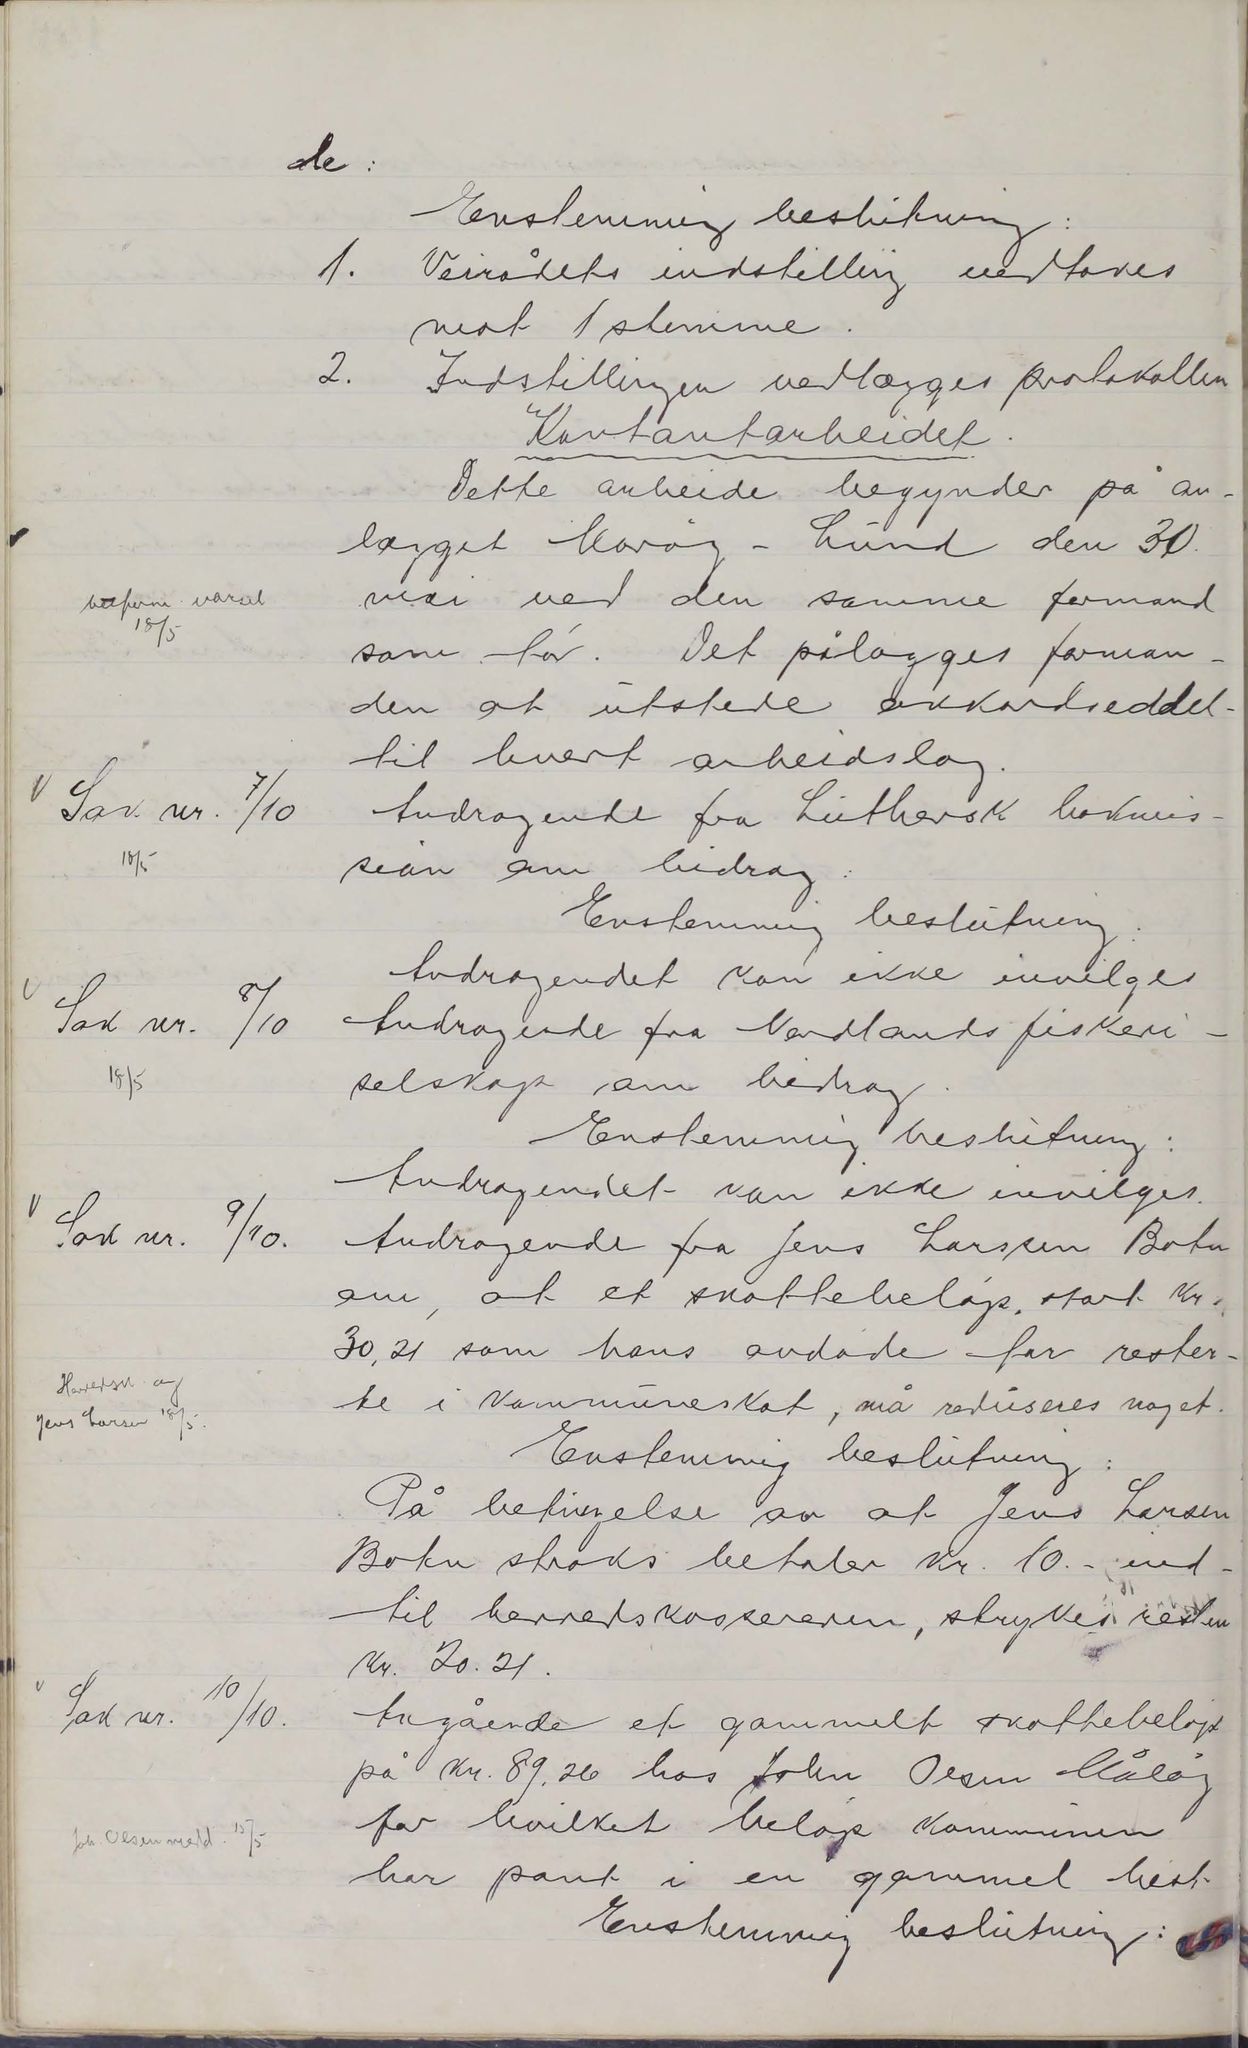 de:
Enstemmig beslutning:
1. Veirådets indstilling vedtakes
mot 1 stemme.
2. Indstillingen vedlægges protokollen
Kontantarbeidet.
Dette arbeide begynder på an-
lægget Morøy - Lund den 30.
mai ved den samme formand
som før. Det pålægges forman-
den at utstede akkordseddel
til hvert arbeidslag.
varsel
18/5
V Sak nr. 7/10 Andragende fra Luthersk bokmis-
18/5
sion om bidrag:
Enstemmig beslutning:
Andragendet kan ikke invilges
V Sak nr. 8/10 Andragende fra Nordlands fiskeri-
18/5
selskap om bidrag.
Enstemmig beslutning:
Andragendet kan ikke invilges.
V Sak nr. 9/10. Andragende fra Jens Larssen Botn
om, at et skattebeløp, stort kr.
30,21 som hans avdøde far rester-
te i kommuneskat, må reduseres noget.
og
Jens Larsen 18/5.
Enstemmig beslutning:
På betingelse av at Jens Larsen
Botn straks betaler kr. 10.- ind-
til herredskassereren, strykes resten
kr. 20.21.
V Sak nr. 10/10. Angående et gammelt skattebeløp
på kr. 89,26 hos John Olsen Måløy
for hvilket beløp kommunen
Joh. Olsen medd. 15/5
har pant i en gammel hest.
Enstemmig beslutning: